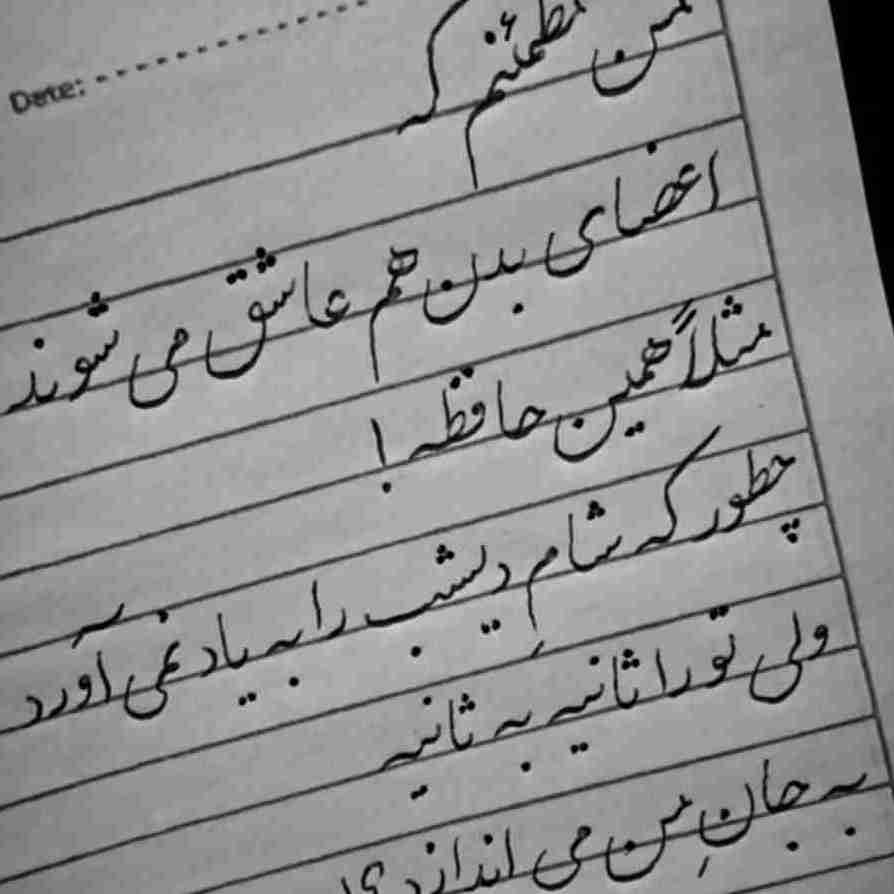 Date:
من مطمئنم که
اعضای بدن هم عاشق می شوند
مثلاً همین حافظه !
چطور که شامِ دیشب را به یاد نمی آورد
ولی تو را ثانیه به ثانیه
به جانِ من می اندازد ؟!